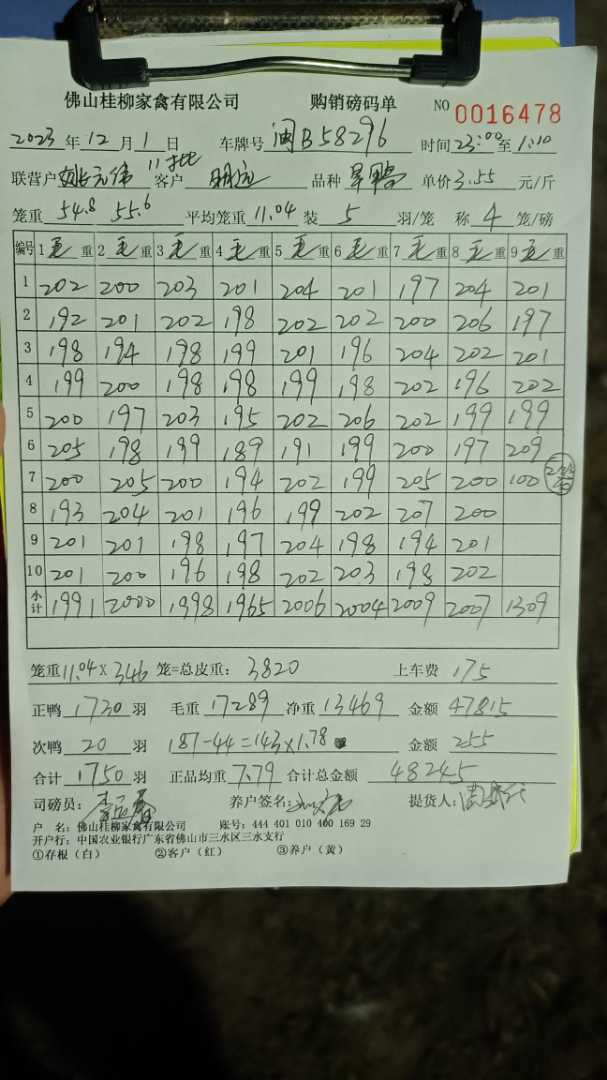 佛山桂柳家禽有限公司 购销磅码单 NO 0016478
2023 年 12 月 1 日 车牌号 闽B58296 时间 23:00 至 1:10
联营户 姚元伟 11批 客户 明远 品种 旱鸭 单价 3.55 元/斤
笼重 54.8 55.6 平均笼重 11.04 装 5 羽/笼 称 4 笼/磅
编号 1 毛 重 2 毛 重 3 毛 重 4 毛 重 5 毛 重 6 毛 重 7 毛 重 8 毛 重 9 毛 重
1 202 200 203 201 204 201 197 204 201
2 192 201 202 198 202 202 200 206 197
3 198 194 198 199 201 196 204 202 201
4 199 200 198 198 199 198 202 196 202
5 200 197 203 195 202 206 202 199 199
6 205 198 199 189 191 199 200 197 209
7 200 205 200 194 202 199 205 200 100
8 193 204 201 196 199 202 207 200
9 201 201 198 197 204 198 194 201
10 201 200 196 198 202 203 198 202
小计 1991 2000 1998 1965 2006 2004 2009 2007 1309
笼重 11.04 X 346 笼=总皮重: 3820 上车费 175
正鸭 1730 羽 毛重 17289 净重 13469 金额 47815
次鸭 20 羽 187-44=143X1.78 金额 255
合计 1750 羽 正品均重 7.79 合计总金额 48245
司磅员: 养户签名: 提货人:
户 名: 佛山桂柳家禽有限公司 账号: 444 401 010 400 169 29
开户行: 中国农业银行广东省佛山市三水区三水支行
①存根(白) ②客户(红) ③养户(黄)